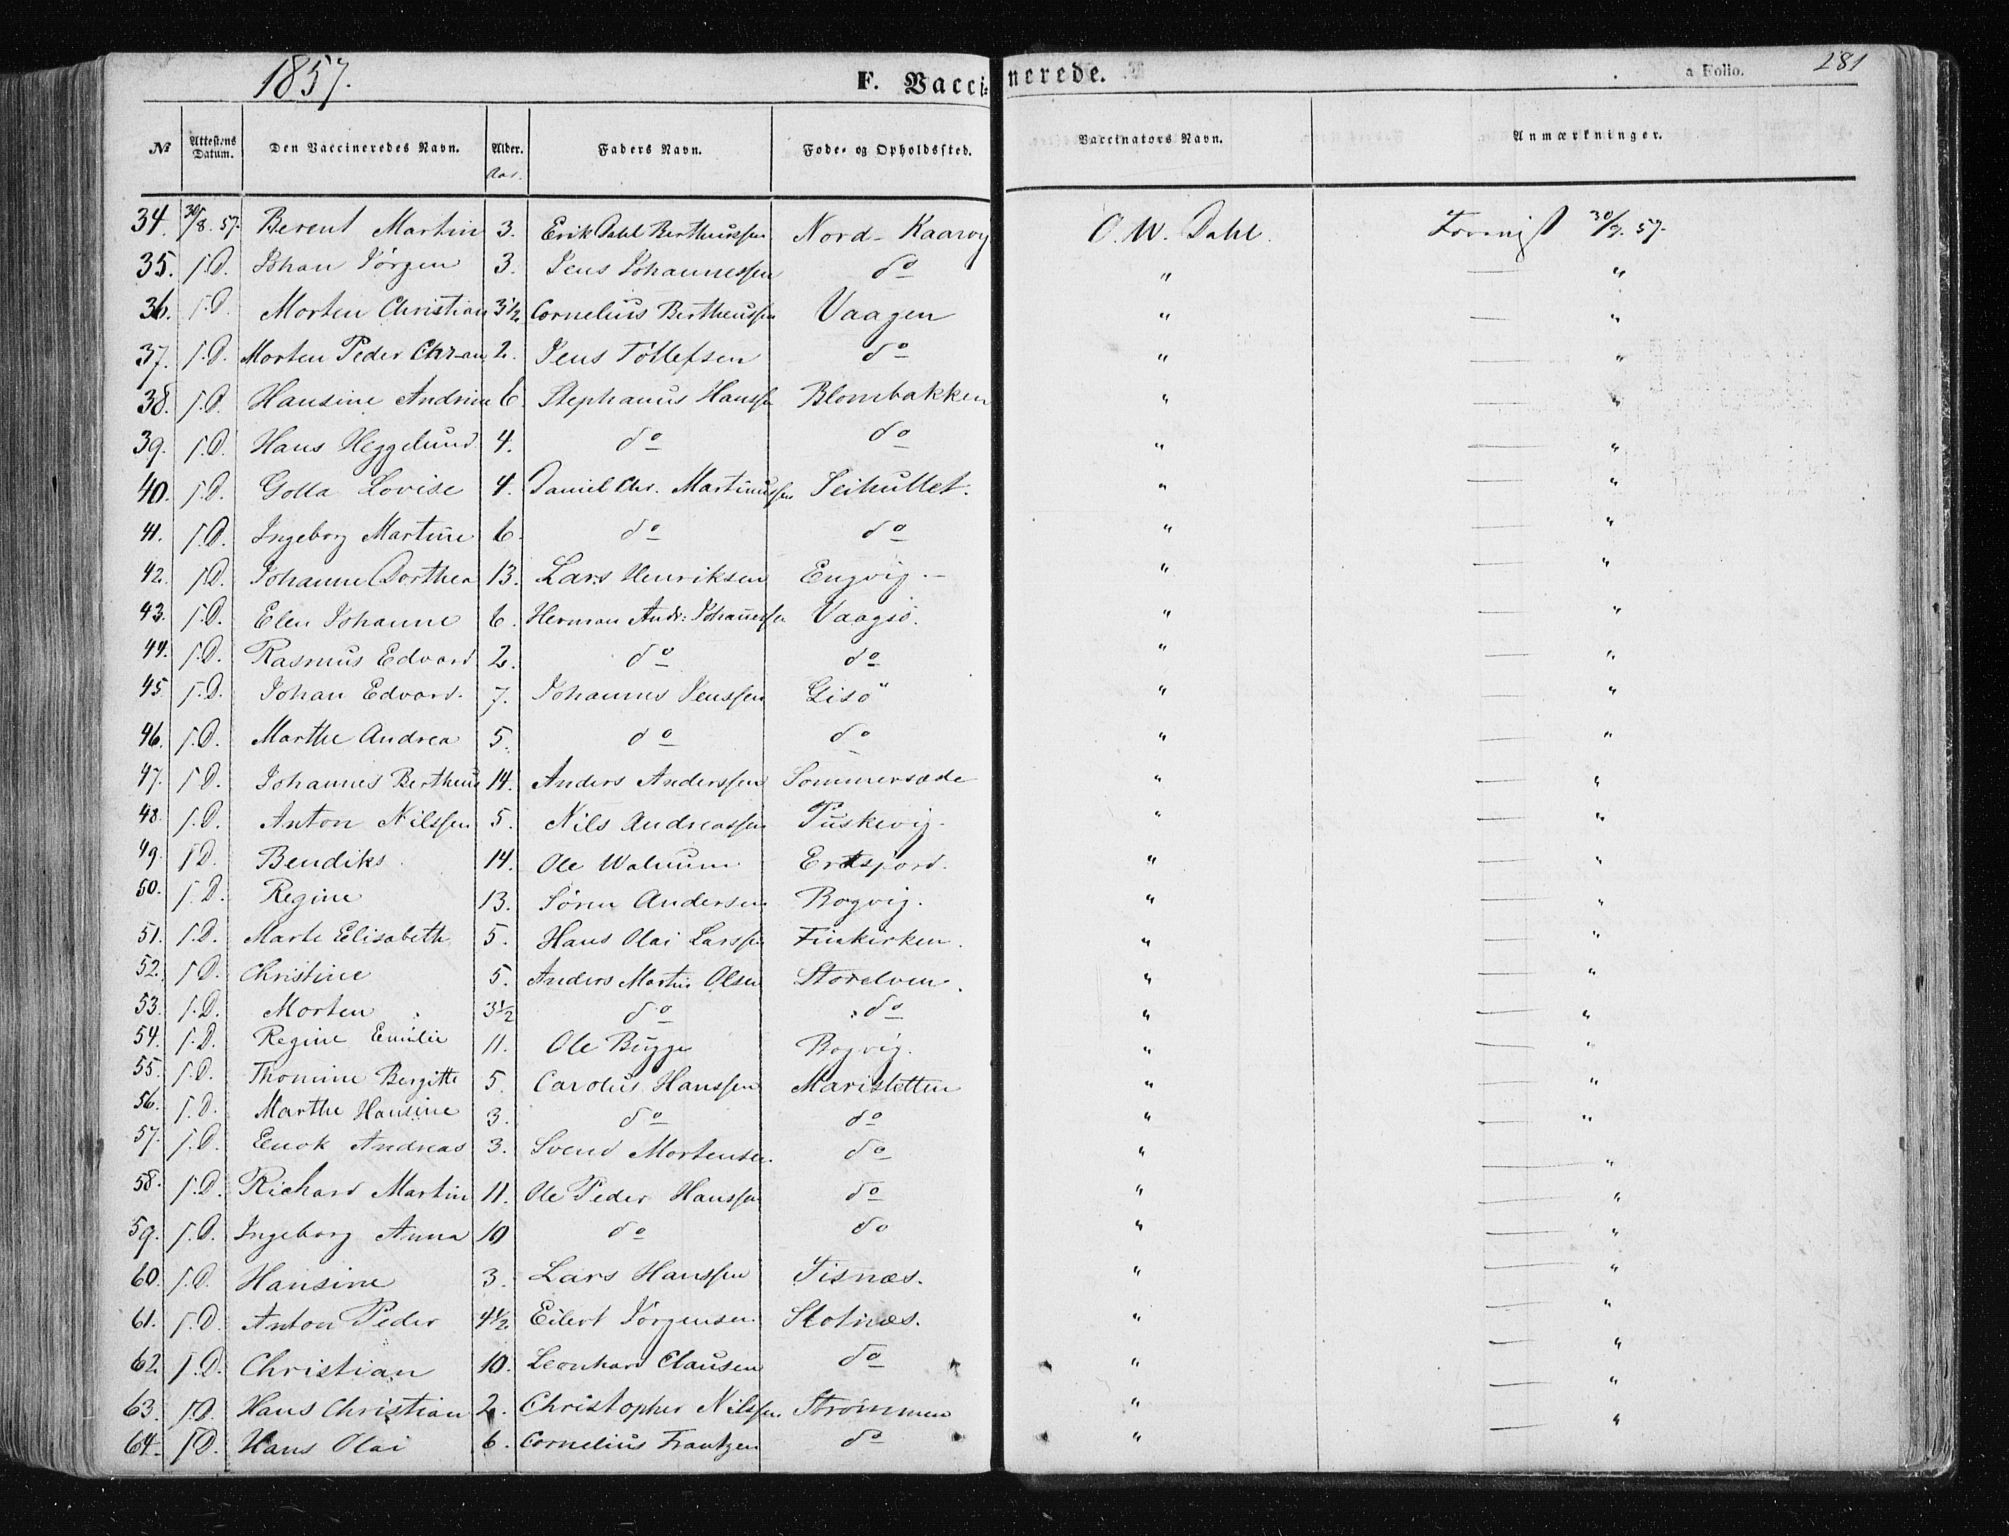 1857. F. Vaccinerede. a Folio. 281
№ Attestens Datum. Den Vaccineredes Navn. Alder. Aar. Faders Navn. Føde- og Opholdssted. Vaccinators Navn. Anmærkninger.
34. 30/8. 57. Berent Martin 3. Erik Dahl Bertheussen Nord-Kaarvog O. W. Dahl. Forevist 30/7. 57.
35. s.D. Johan Jørgen 3. Jens Johannessen do " — "
36. s.D. Morten Christian 3½ Cornelius Bertheussen Vaagen " — "
37. s.D. Morten Peder Chr-an 2. Jens Tollefsen do " — "
38. s.D. Hansine Andrine 6. Stephanus Hanssen Blombakken " — "
39. s.D. Hans Heggelund 4. do do " — "
40. s.D. Golla Lovise 4. Daniel Chr. Martinussen Seihullet. " — "
41. s.D. Ingeborg Martine 6. do do " — "
42. s.D. Johanne Dorthea 13. Lars Henriksen Engvig. " — "
43. s.D. Elen Johanne 6. Herman Andr: Johannessen Vaagsö. " — "
44. s.D. Rasmus Edvard 2. do do " — "
45. s.D. Johan Edvard. 7. Johannes Jenssen Gisö " — "
46. s.D. Marthe Andrea 5. do do " — "
47. s.D. Johannes Bertheus 14. Anders Anderssen Sommersæde " — "
48. s.D. Anton Nilssen 5. Nils Andreassen Tuskevig. " — "
49. s.D. Bendiks. 14. Ole Walnum. Ersfjord. " — "
50. s.D. Regine 13. Søren Andersen Bogvig. " — "
51. s.D. Marte Elisabeth 5. Hans Olai Larssen Finkirken. " — "
52. s.D. Christine 5. Anders Martin Olsen Storelven. " — "
53. s.D. Morten 3½ do do " — "
54. s.D. Regine Emilie 11. Ole Bugge Bogvig. " — "
55. s.D. Thomine Bergitte 5. Carolus Hanssen Marisletten " — "
56. s.D. Marthe Hansine 3. do do " — "
57. s.D. Enok Andreas 3. Svend Mortensen. do " — "
58. s.D. Richard Martin 11. Ole Peder Hanssen do " — "
59. s.D. Ingeborg Anna 10 do do " — "
60. s.D. Hansine 3. Lars Hanssen Tisnæs. " — "
61. s.D. Anton Peder 4½ Eilert Jørgensen. Slotnæs. " — "
62. s.D. Christian 10. Leonhard Clausen do " — "
63. s.D. Hans Christian 2. Christopher Nilssen Strømmen " — "
64. s.D. Hans Olai 6. Cornelius Frantzen do " — "